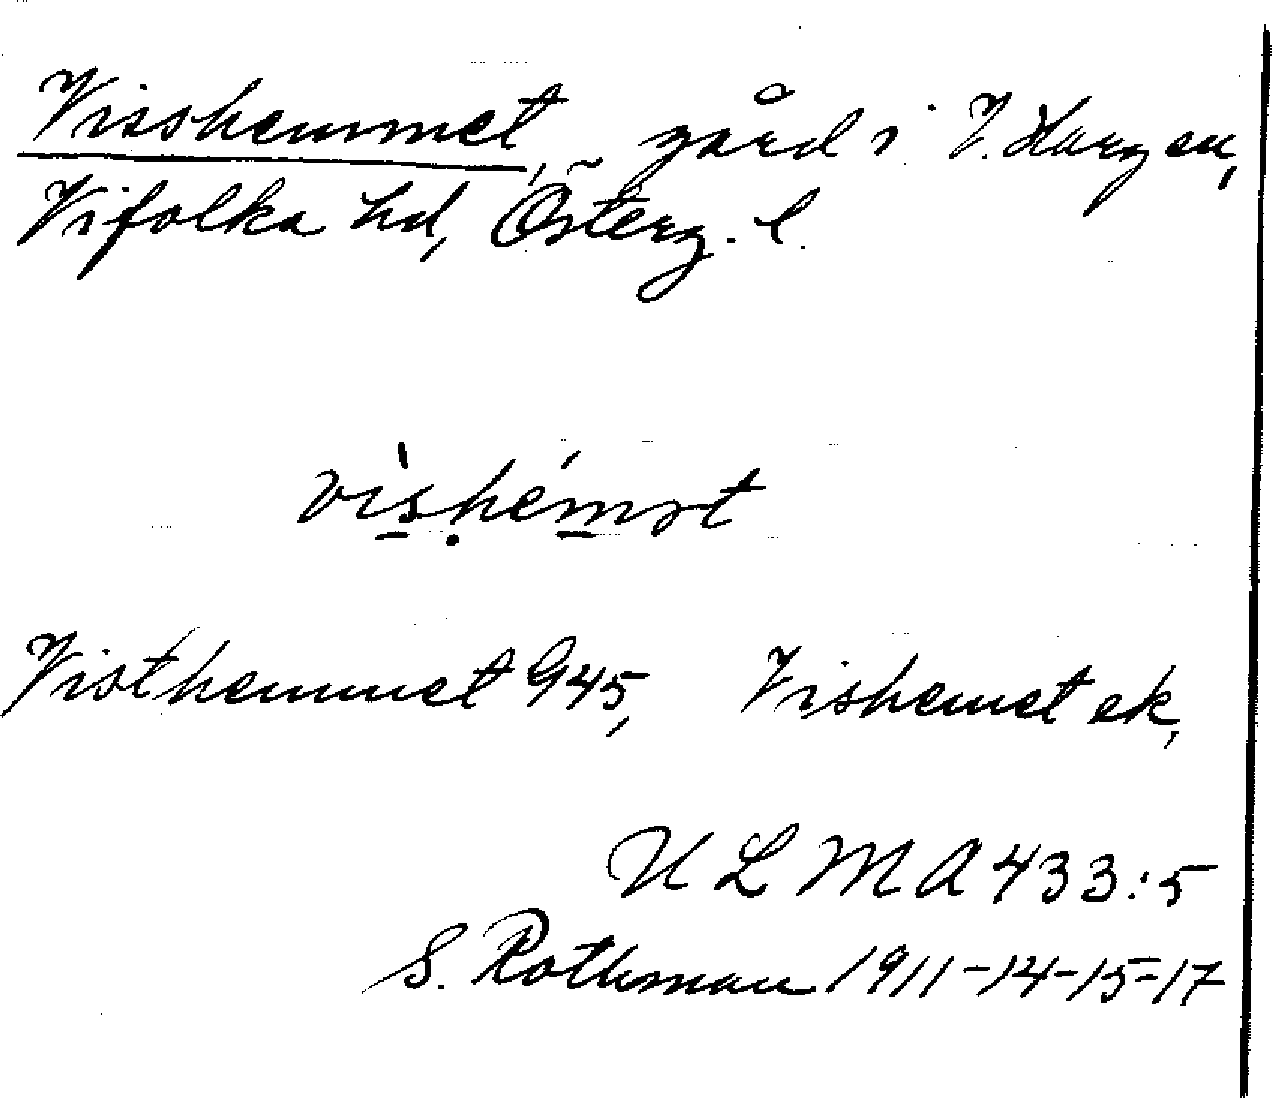 Visshemmet, gård i V. Harg en,
Vifolka hd, Österg. l.
Visthemmet 945, Vishemet ek,
ULMA 433:5
S. Rothman 1911-14-15-17